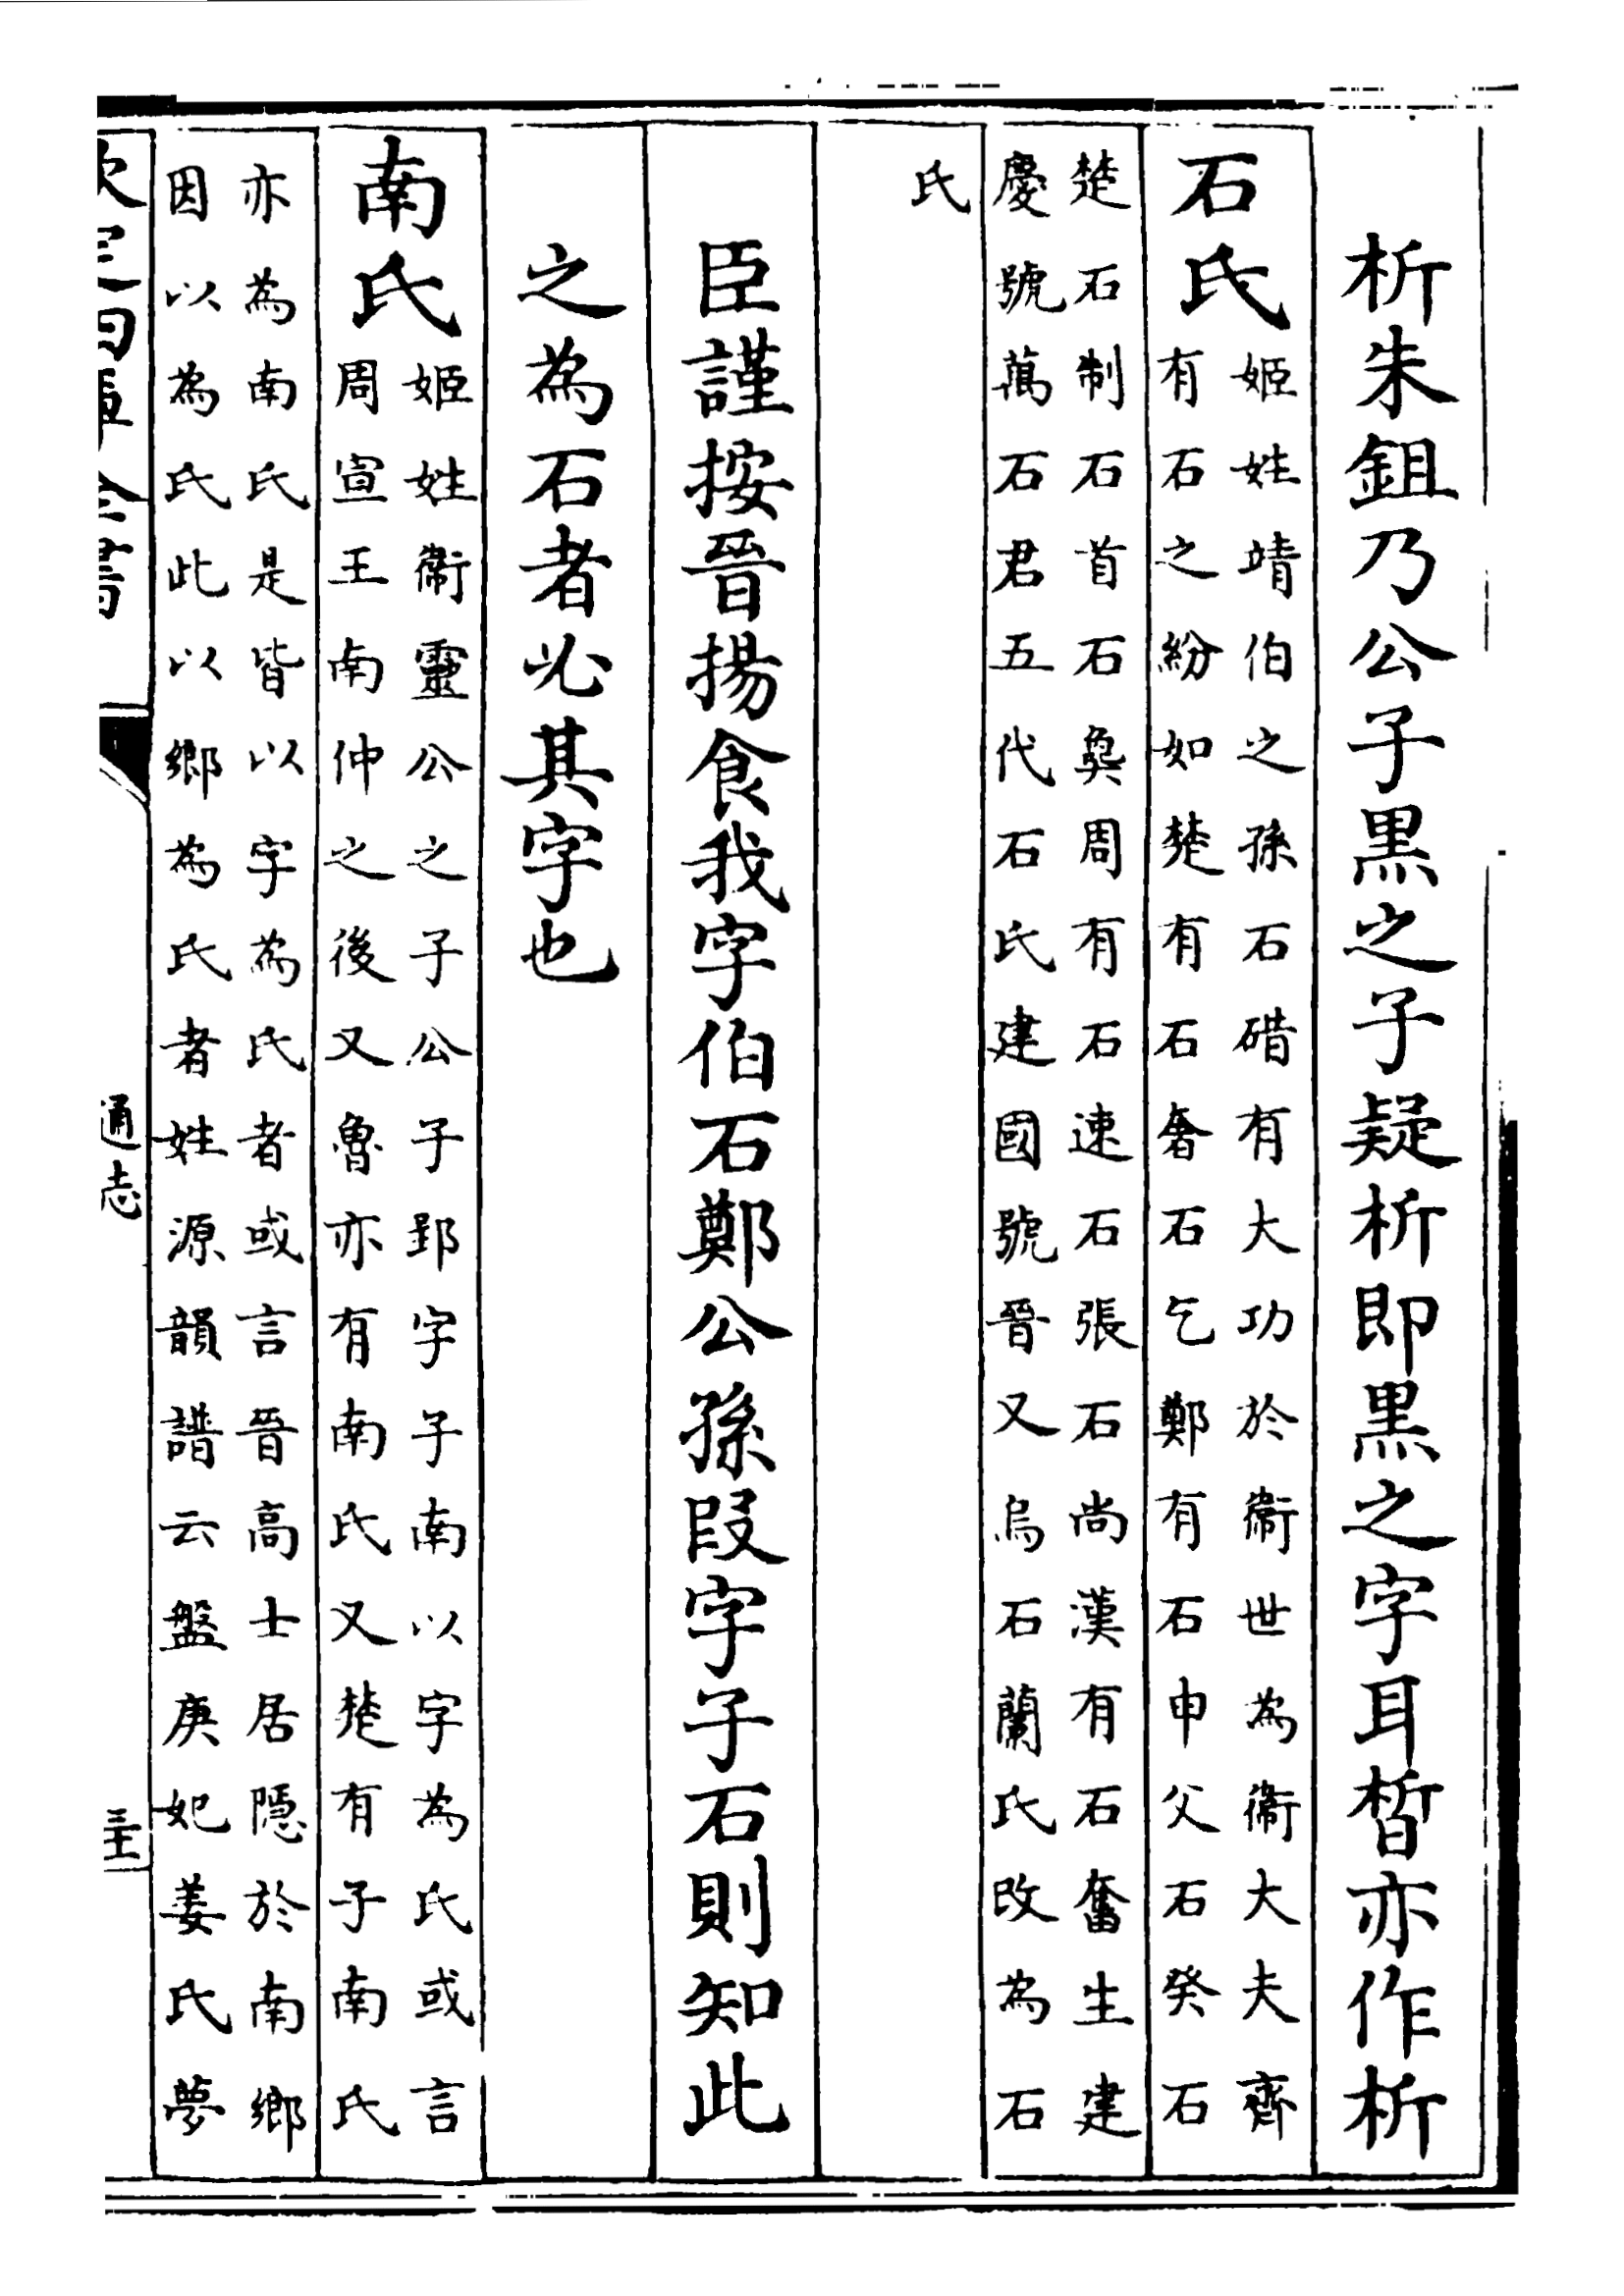 析朱鉏乃公子黒之子疑析即黒之字耳皙亦作析
石氏
姬姓靖伯之孫石碏有大功於衞世為衞大夫齊
有石之紛如楚有石奢石乞鄭有石申父石癸石
楚石制石首石㚟周有石速石張石尚漢有石奮生建
慶號萬石君五代石氏建國號晉又烏石蘭氏改為石
氏
臣謹按晉揚食我字伯石鄭公孫段字子石則知此
之為石者必其字也
南氏
姬姓衞靈公之子公子郢字子南以字為氏或言
周宣王南仲之後又魯亦有南氏又楚有子南氏
亦為南氏是皆以字為氏者或言晉高士居隱於南鄉
因以為氏此以鄉為氏者姓源韻譜云盤庚妃姜氏夢
欽定四庫全書
通志